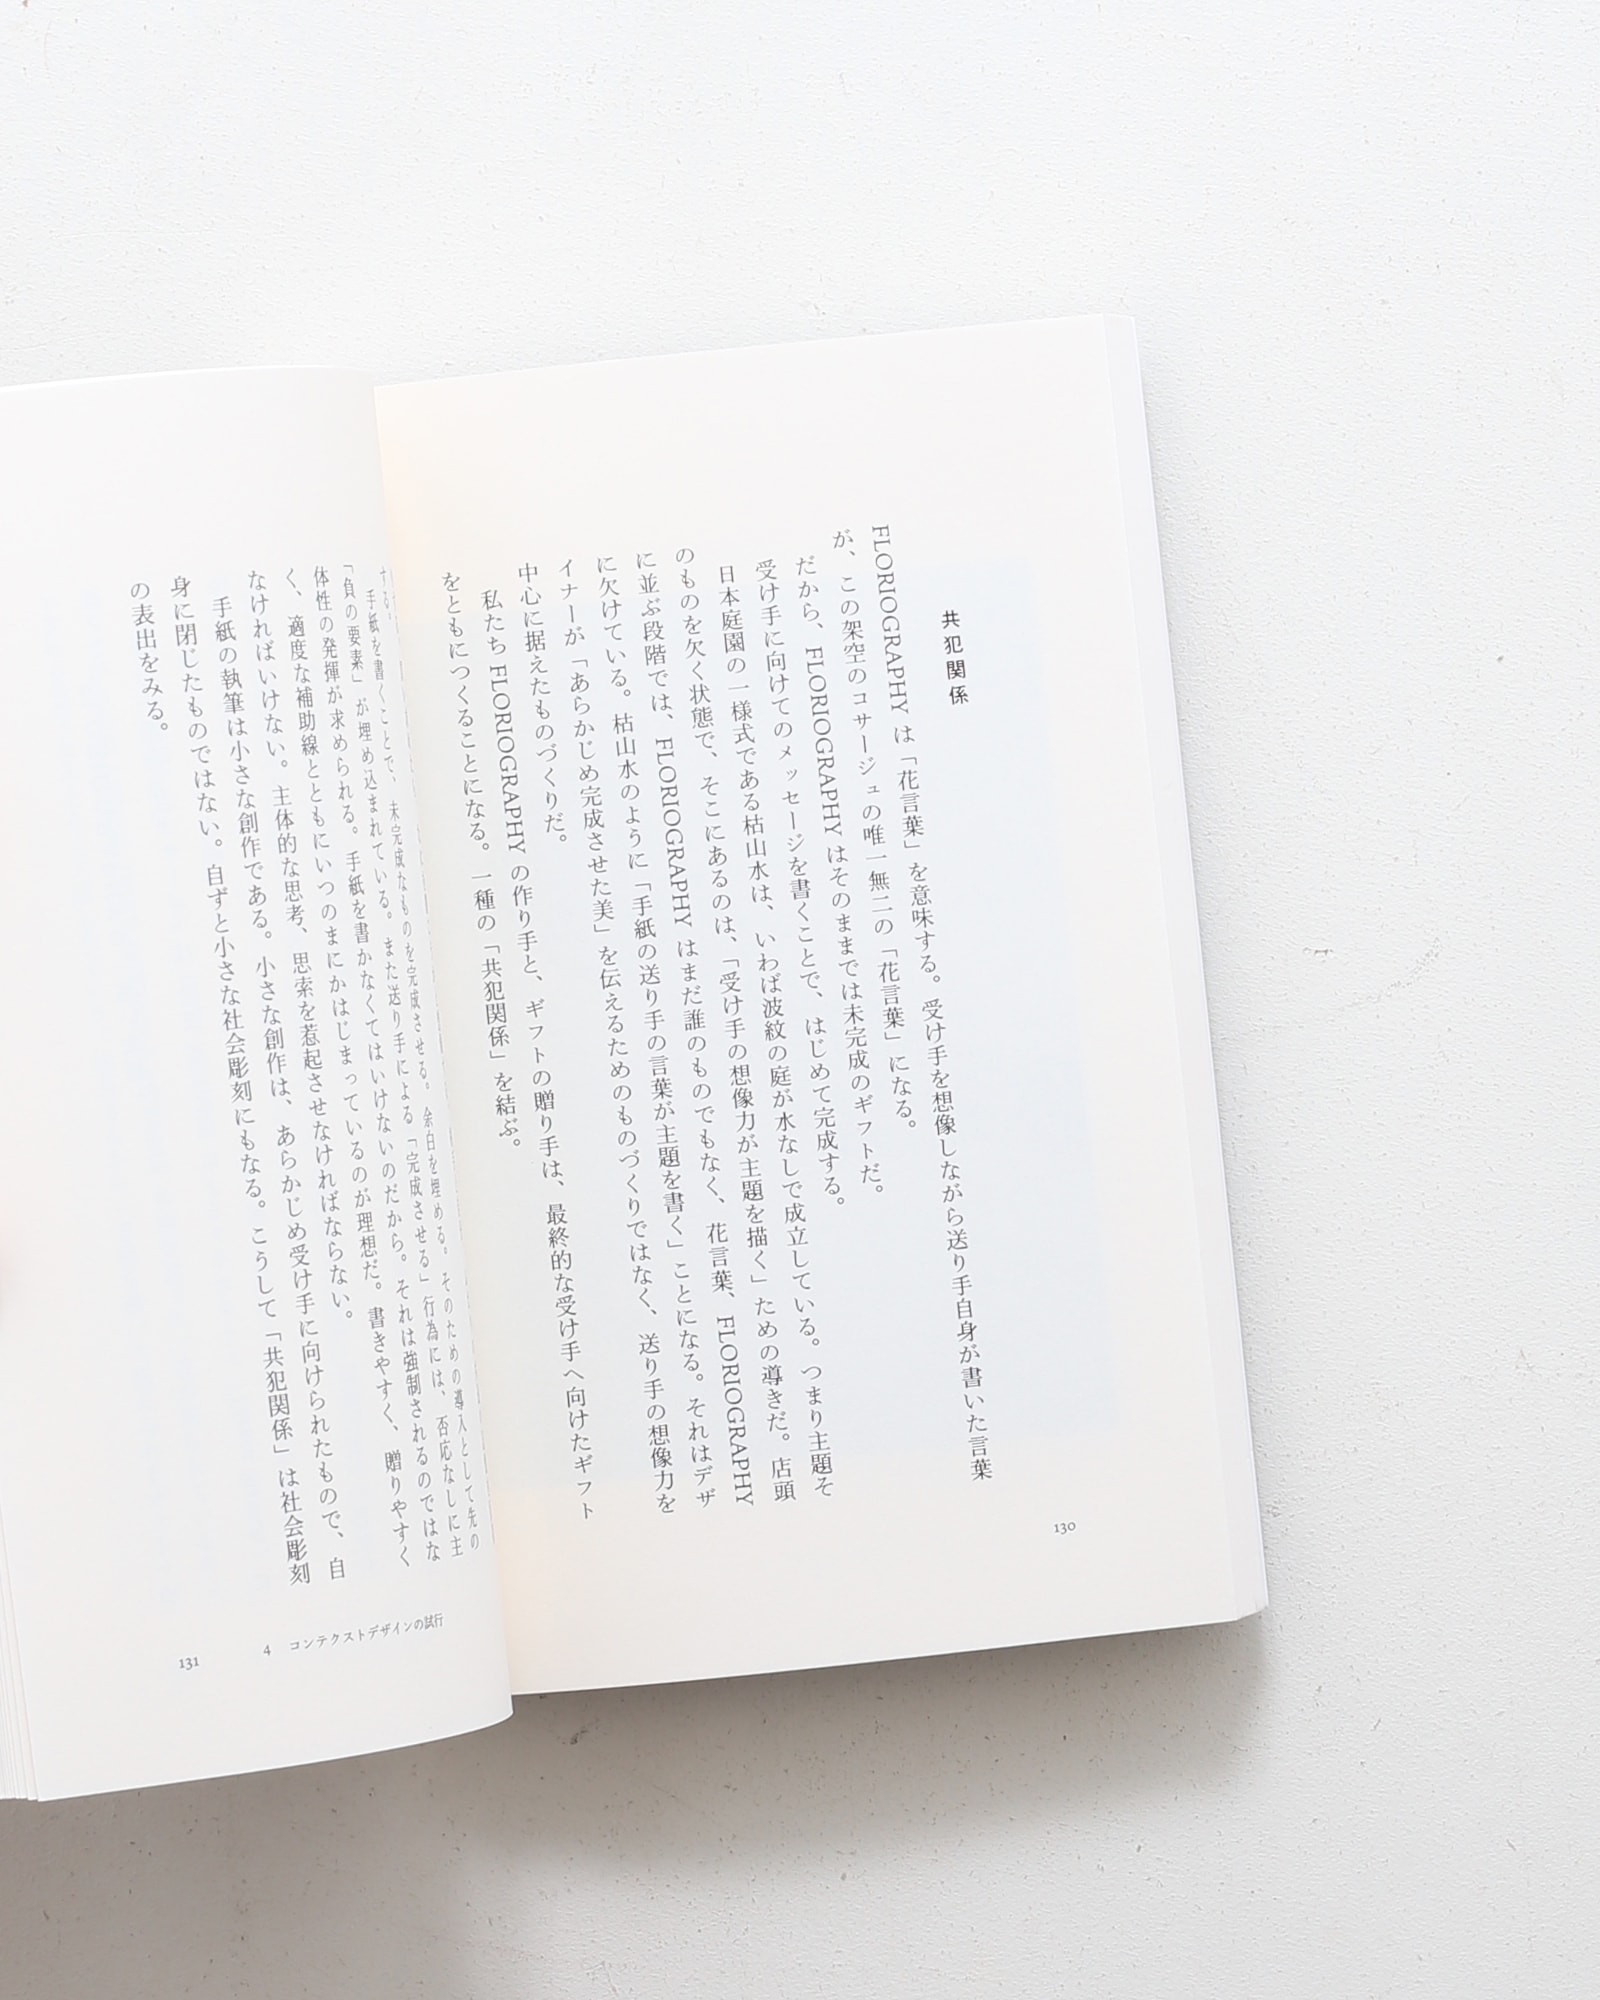 共犯関係
FLORIOGRAPHY は「花言葉」を意味する。受け手を想像しながら送り手自身が書いた言葉
が、この架空のコサージュの唯一無二の「花言葉」になる。
だから、FLORIOGRAPHY はそのままでは未完成のギフトだ。
受け手に向けてのメッセージを書くことで、はじめて完成する。
日本庭園の一様式である枯山水は、いわば波紋の庭が水なしで成立している。つまり主題そ
のものを欠く状態で、そこにあるのは、「受け手の想像力が主題を描く」ための導きだ。店頭
に並ぶ段階では、FLORIOGRAPHY はまだ誰のものでもなく、花言葉、FLORIOGRAPHY
に欠けている。枯山水のように「手紙の送り手の言葉が主題を書く」ことになる。それはデザ
イナーが「あらかじめ完成させた美」を伝えるためのものづくりではなく、送り手の想像力を
中心に据えたものづくりだ。
私たち FLORIOGRAPHY の作り手と、ギフトの贈り手は、最終的な受け手へ向けたギフト
をともにつくることになる。一種の「共犯関係」を結ぶ。
130
する。
手紙を書くことで、未完成なものを完成させる。余白を埋める。そのための導入として先の
「負の要素」が埋め込まれている。また送り手による「完成させる」行為には、否応なしに主
体性の発揮が求められる。手紙を書かなくてはいけないのだから。それは強制されるのではな
く、適度な補助線とともにいつのまにかはじまっているのが理想だ。書きやすく、贈りやすく
なければいけない。主体的な思考、思索を惹起させなければならない。
手紙の執筆は小さな創作である。小さな創作は、あらかじめ受け手に向けられたもので、自
身に閉じたものではない。自ずと小さな社会彫刻にもなる。こうして「共犯関係」は社会彫刻
の表出をみる。
4 コンテクストデザインの試行
131